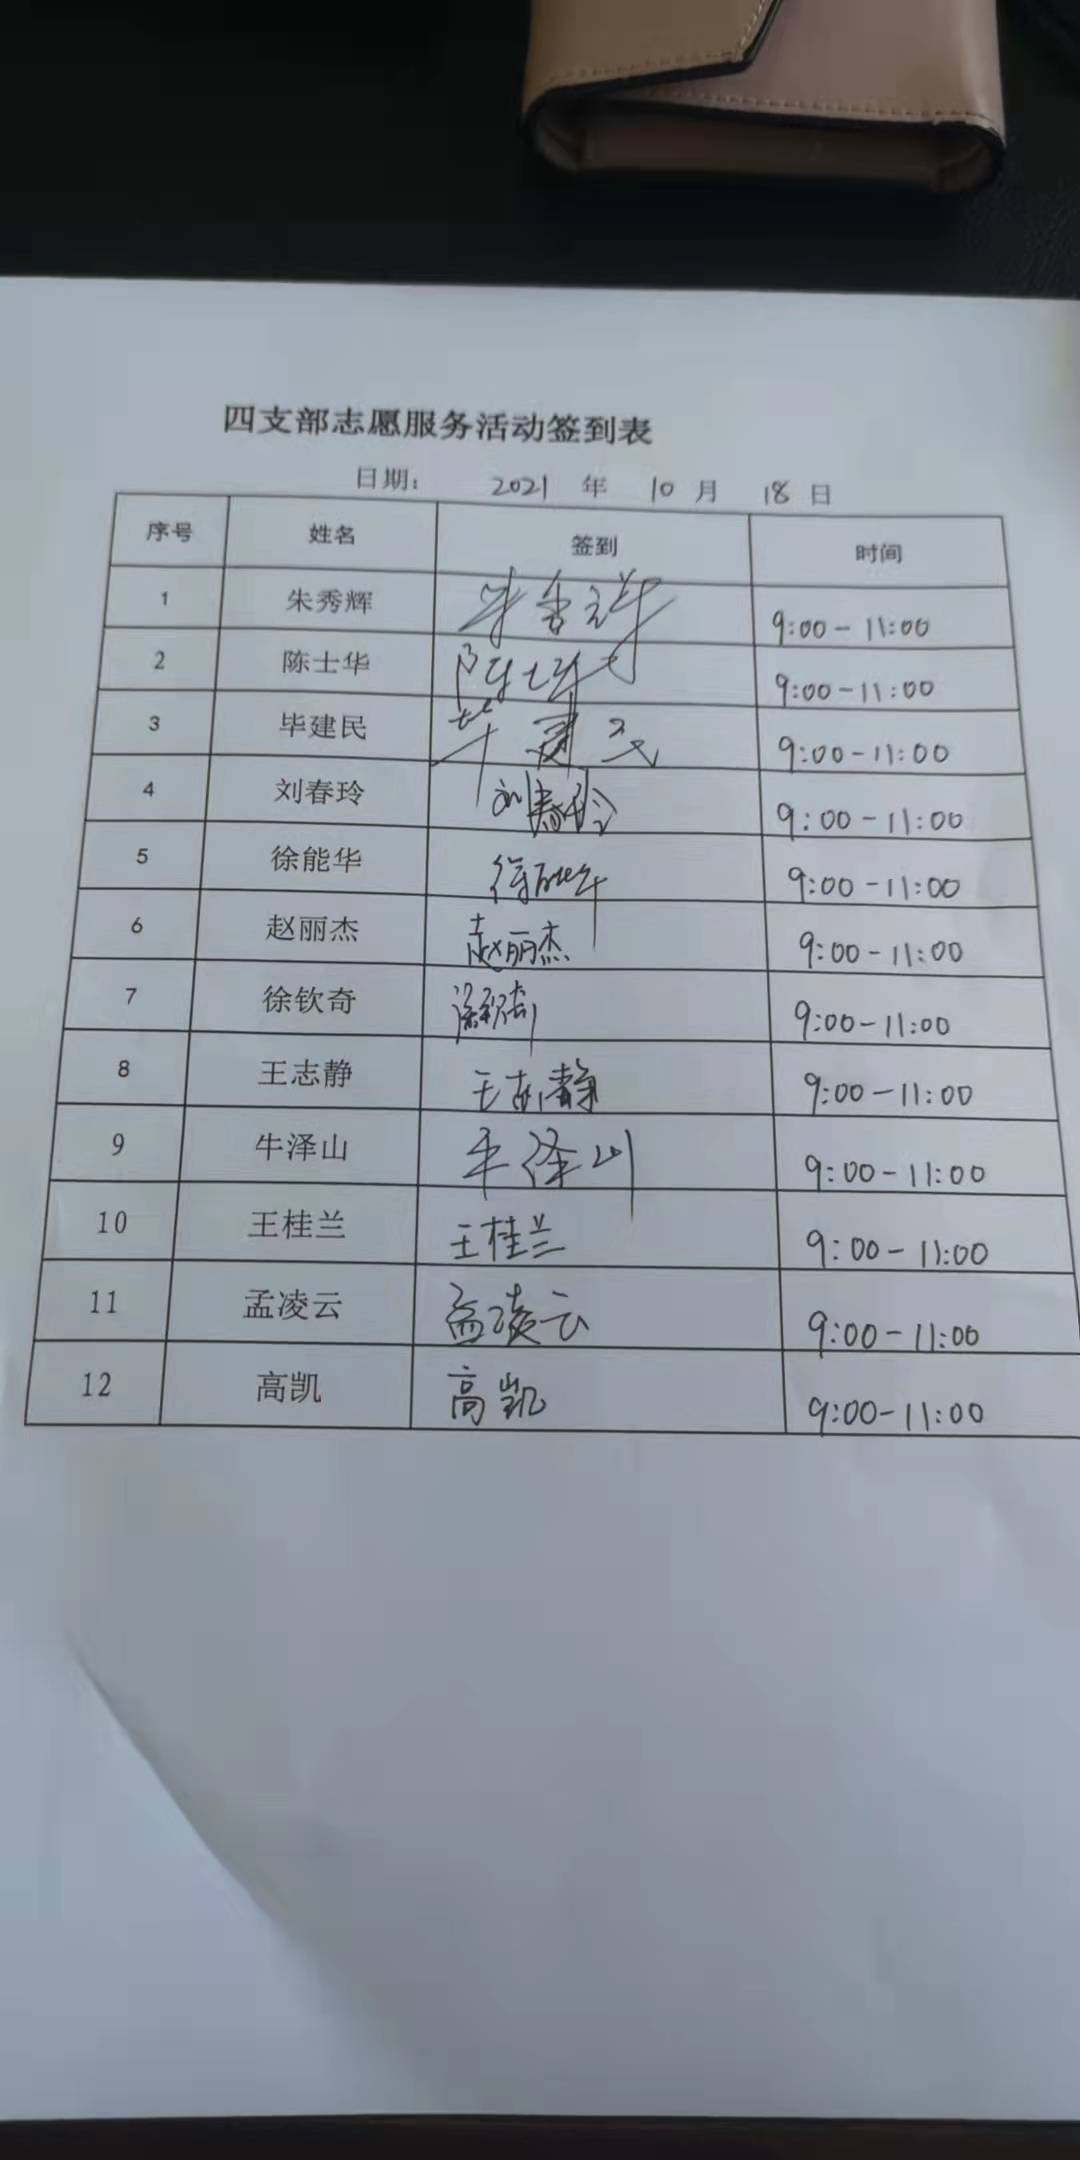 四支部志愿服务活动签到表
日期： 2021 年 10 月 18 日
序号 姓名 签到 时间
1 朱秀辉 9:00-11:00
2 陈士华 陈士华 9:00-11:00
3 毕建民 毕建民 9:00-11:00
4 刘春玲 刘春玲 9:00-11:00
5 徐能华 徐能华 9:00-11:00
6 赵丽杰 赵丽杰 9:00-11:00
7 徐钦奇 9:00-11:00
8 王志静 王志静 9:00-11:00
9 牛泽山 牛泽山 9:00-11:00
10 王桂兰 王桂兰 9:00-11:00
11 孟凌云 孟凌云 9:00-11:00
12 高凯 高凯 9:00-11:00